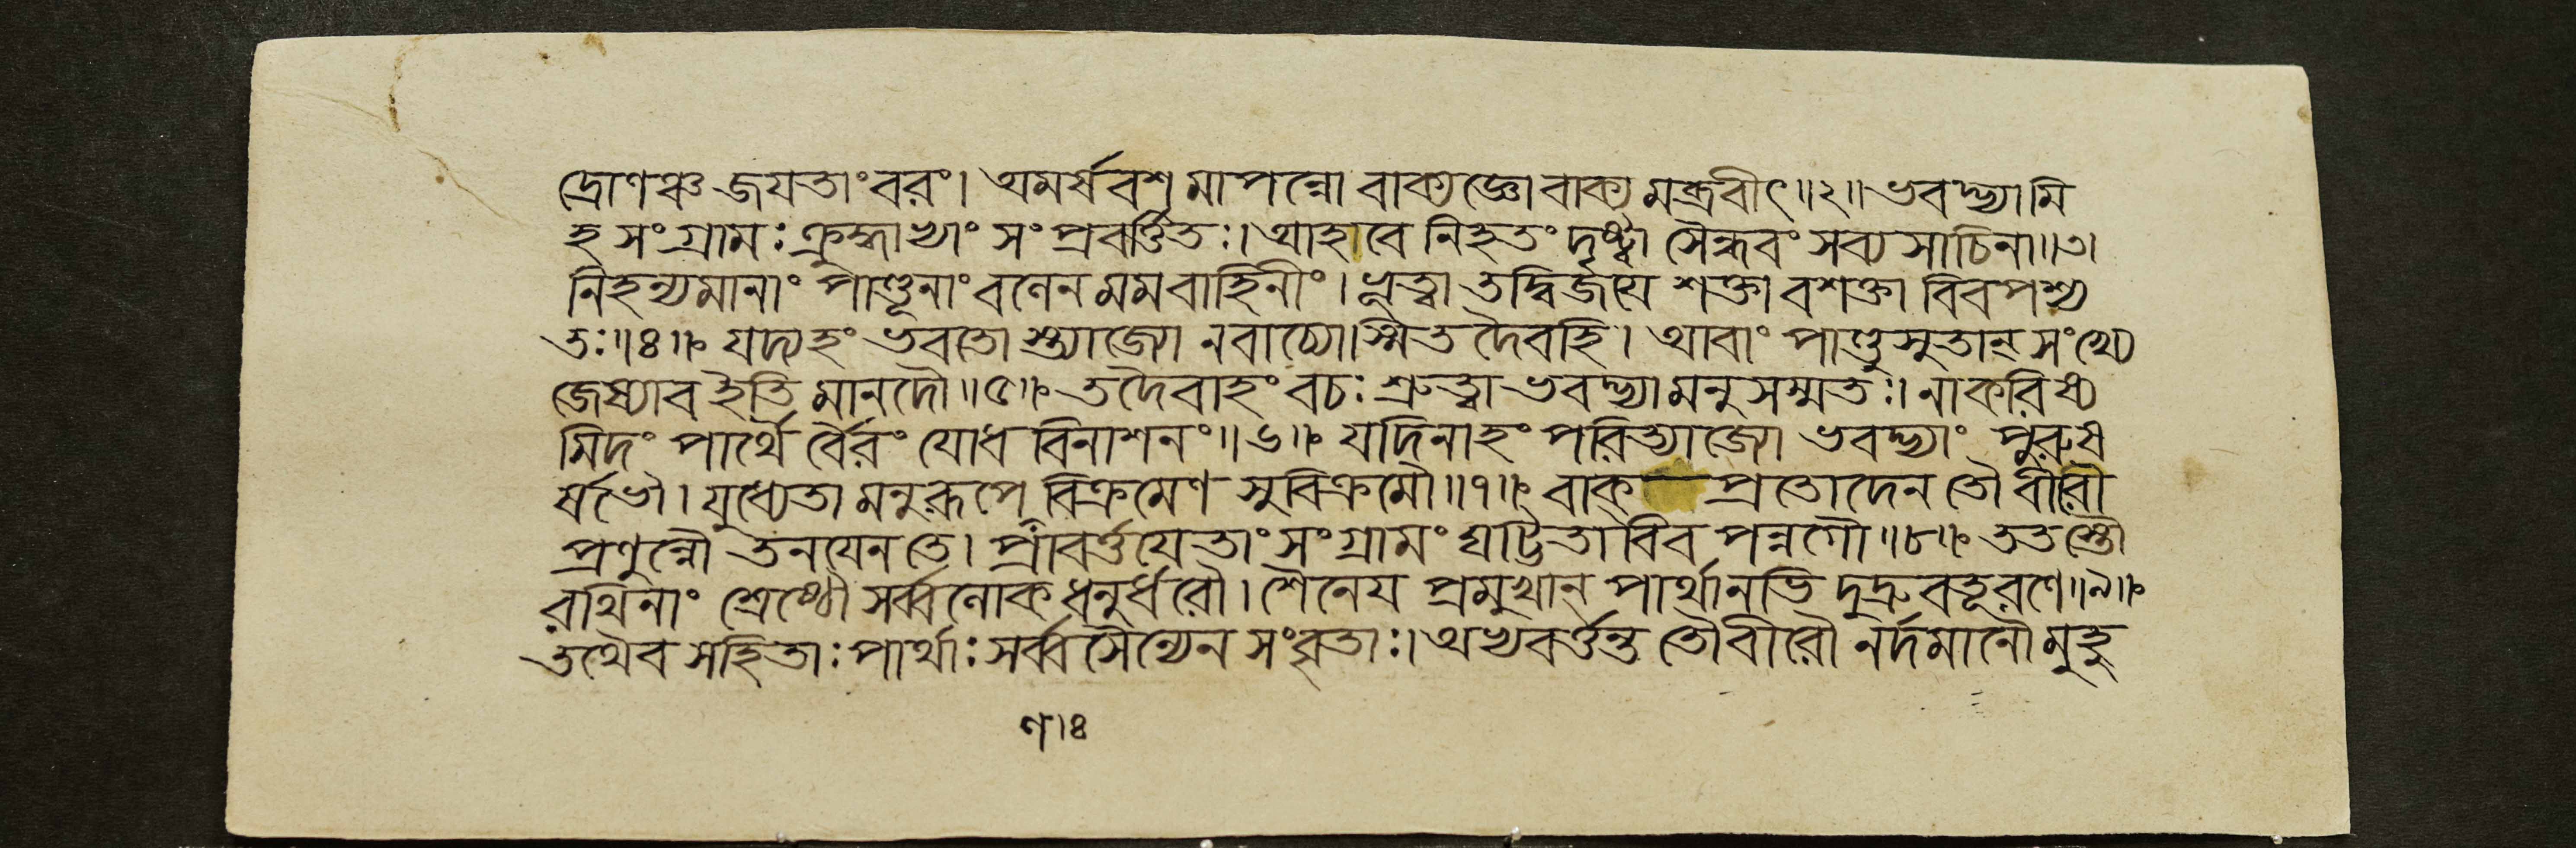 দ্রোণঞ্চ জযতাং বরং। অমর্ষবশমাপন্নো বাক্যজ্ঞো বাক্যমব্রবীৎ॥২॥ ভবদ্ভ্যামি
হ সংগ্রামঃ ক্রুদ্ধাভ্যাং সংপ্রবর্ত্তিতঃ। আহবে নিহতং দৃষ্ট্বা সৈন্ধবং সব্যসাচিনা॥৩।
নিহন্যমানাং পাণ্ডূনাং বলেন মমবাহিনীং। ভূত্বা তদ্বিজযে শক্তাবশক্তাবিব পশ্য
তঃ॥৪॥ যদ্যহং ভবতোস্ত্যাজ্যো নবাচ্যোস্মি তদৈবহি। আবাং পাণ্ডুসুতান্ সংখ্যে
জেষ্যাব ইতি মানদৌ॥৫॥ তদৈবাহং বচঃ শ্রুত্বা ভবদ্ভ্যামনুসম্মতঃ। নাকরিষ্য
মিদং পার্থৈর্বৈরং যোধবিনাশনং॥৬॥ যদিনাহং পরিত্যাজ্যো ভবদ্ভ্যাং পুরুষ
র্ষভৌ। যুধ্যেতামনুরূপেণ বিক্রমেণ সুবিক্রমৌ॥৭॥ বাক্ প্রতোদেন তৌ বীরৌ
প্রণুন্নৌ তনযেন তে। প্রাবর্ত্তযেতাং সংগ্রামং ঘট্টিতাবিব পন্নগৌ॥৮॥ ততস্তৌ
রথিনাং শ্রেষ্ঠৌ সর্ব্বলোকধনুর্ধরৌ। শৈনেয প্রমুখান্ পার্থানভিদুদ্রুবতূরণে॥৯॥
তথৈব সহিতাঃ পার্থাঃ সর্ব্বসৈন্যেন সংবৃতাঃ। অভ্যবর্ত্তন্ত তৌ বীরৌ নর্দমানৌ মুহু